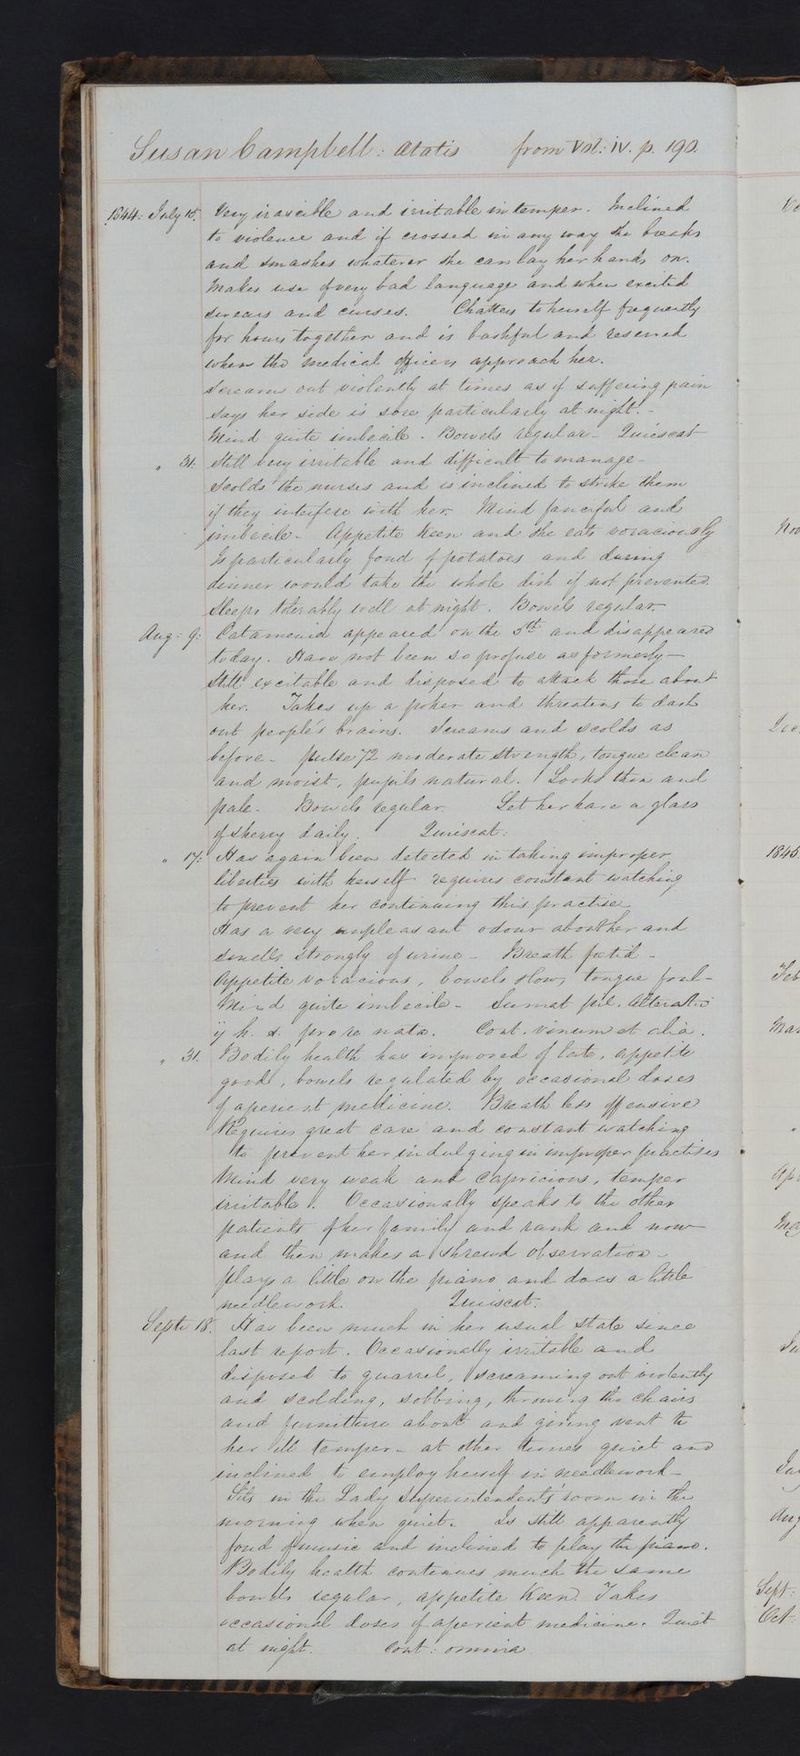 Susan Campbell: Ætatis from Vol: IV. p. 190.
1844: July 15. Very irascible and irritable in temper. Inclined
to violence and if crossed in any way she breaks
and smashes whatever she can lay her hands on.
Makes use of very bad language and when excited
swears and curses. Chatters to herself frequently
for hours together and is bashful and reserved
when the medical officers approach her.
Screams out violently at times as if suffering pain
Says her side is sore particularly at night. -
Mind quite imbecile. Bowels regular - Quiescat
" 31. Still very irritable and difficult to manage -
Scolds the nurses and is inclined to strike them
if they interfere with her. Mind fanciful and
imbecile - Appetite keen and she eats voraciously
Is particularly fond of potatoes and during
dinner would take the whole dish if not prevented.
Sleeps tolerably well at night. Bowels regular
Aug: 9: Catamenia appeared on the 5th and disappeared
today. Have not been so profuse as formerly -
Still excitable and disposed to attack those about
her. Takes up a poker and threatens to dash
out people's brains. Screams and scolds as
before - pulse 72 moderate strength, tongue clean
and moist, pupils natural. Looks thin and
pale. Bowels regular. Let her have a glass
of sherry daily. Quiescat:
" 17: Has again been detected in taking improper
liberties with herself requires constant watching
to prevent her continuing this practise.
Has a very unpleasant odour about her and
smells strongly of urine - Breath fœtid -
Appetite voracious, bowels slow, tongue foul -
Mind quite imbecile - Sumat pil. alterativ
ij h. s. pro re nata. Cont. vinum et alia.
" 31. Bodily health has improved of late, appetite
good, bowels regulated by occasional doses
of aperient medicine. Breath less offensive
Requires great care and constant watching
to prevent her indulging in improper practises
Mind very weak and capricious, temper
irritable. Occasionally speaks to the other
patients of her family and rank and now
and then makes a shrewd observation -
plays a little on the piano and does a little
needlework. Quiescat.
Septr 18. Has been much in her usual state since
last report. Occasionally irritable and
disposed to quarrel, screaming out violently
and scolding, sobbing, throwing the chairs
and furniture about and giving vent to
her ill temper - at other times quiet and
inclined to employ herself in needlework -
Sits in the Lady Superintendent's room in the
morning when quiet. Is still apparently
fond of music and inclined to play the piano.
Bodily health continues much the same
bowels regular, appetite keen. Takes
occasional doses of aperient medicine. Quiet
at night. Cont: omnia
Nov
1845
Feb
Mar
Sept:
Oct: